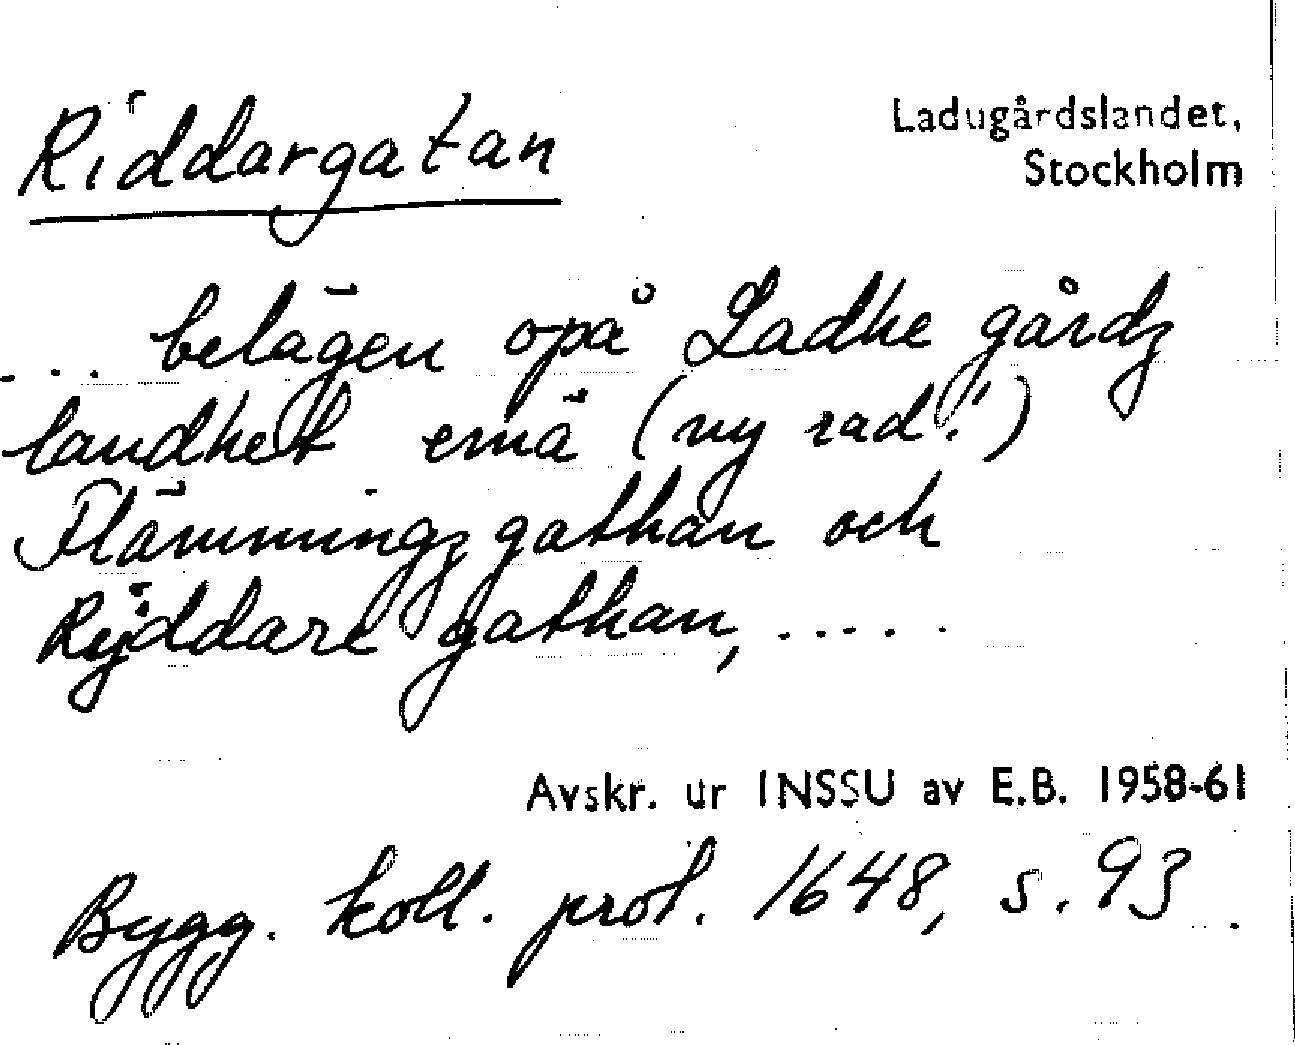 Riddargatan
Ladugårdslandet,
Stockholm
... belägen opå Ladhe gårdz
landhet emä (ny rad!)
Flämmingz gathan och
Rÿddare gathan, .....
Avskr. ur INSSU av E.B. 1958-61
Bygg. koll. prot. 1648, s. 93.